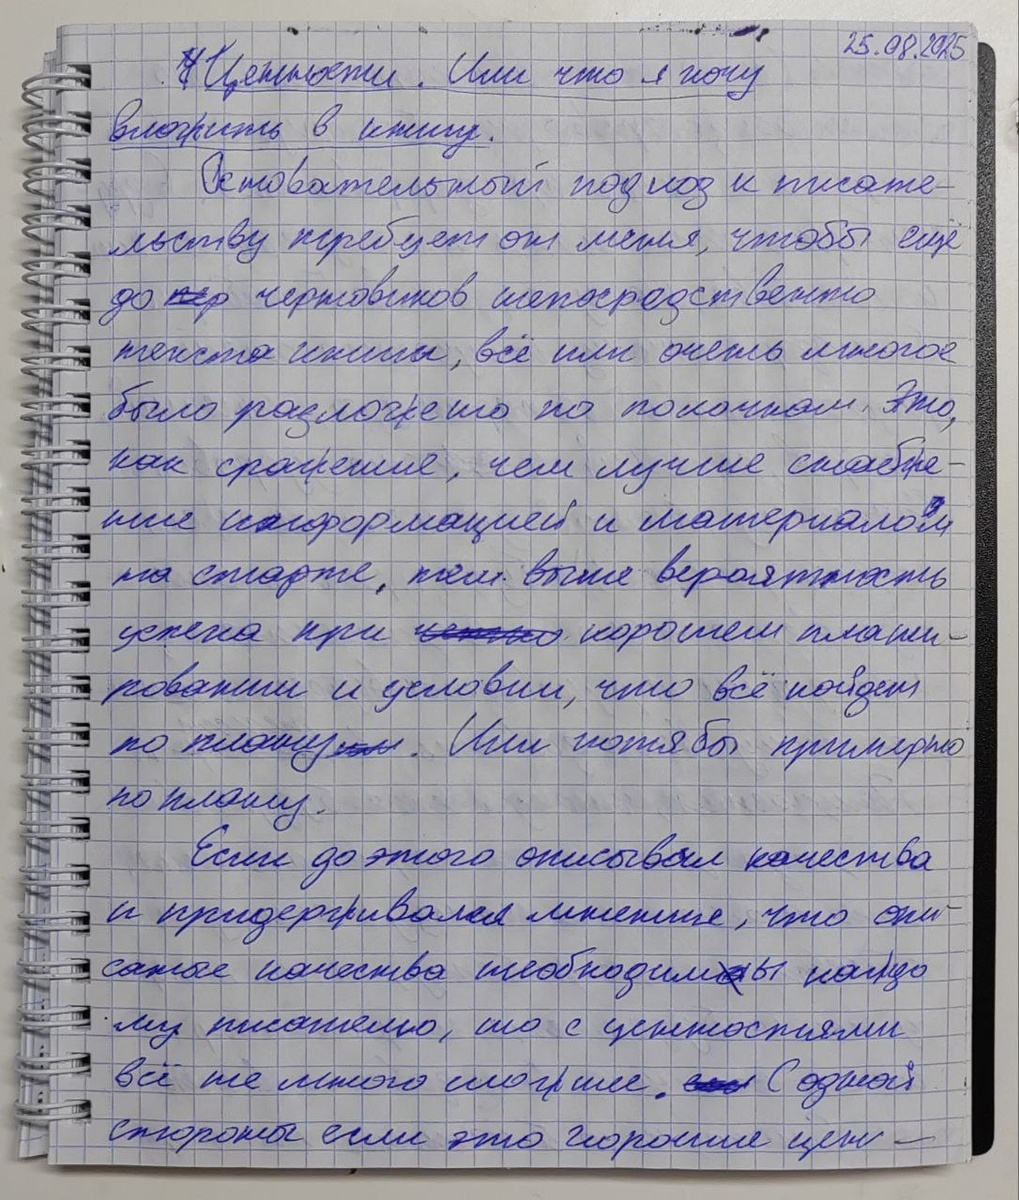 25.08.2025
# Ценности. Или что я хочу
вложить в книгу.
Основательный подход к писате-
льству требует от меня, чтобы ещё
до черновиков непосредственно
текста книги, всё или очень многое
было разложено по полочкам. Это,
как сражение, чем лучше снабже-
ние информацией и материалом
на старте, тем выше вероятность
успеха при хорошем плани-
ровании и условии, что всё пойдет
по плану. Или хотя бы примерно
по плану.
Если до этого описывал качества
и придерживался мнение, что опи-
санные качества необходимы каждо
му писателю, то с ценностями
всё не много сложнее. С одной
стороны если это хорошие цен-